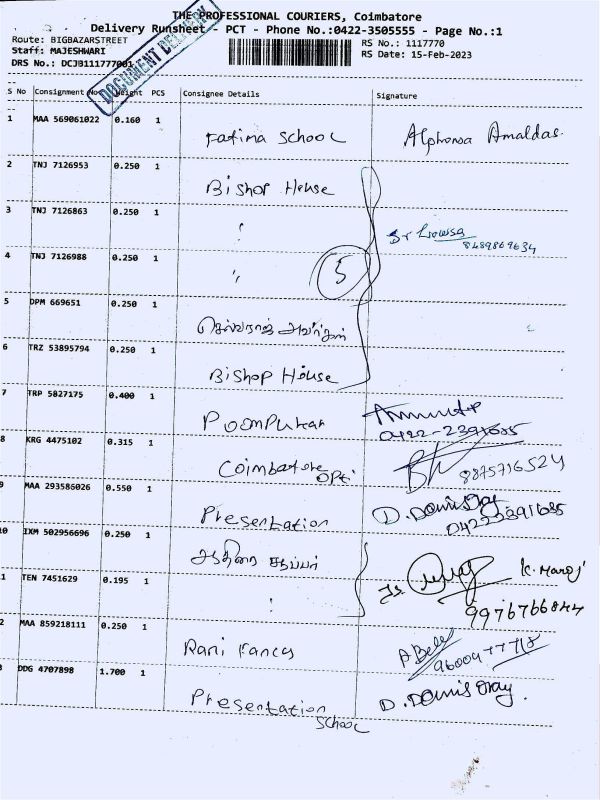 THE PROFESSIONAL COURIERS, Coimbatore
Delivery Runsheet - PCT - Phone No.:0422-3505555 - Page No.:1
Route: BIGBAZARSTREET
RS No.: 1117770
Staff: MAJESHWARI
RS Date: 15-Feb-2023
DRS No.: DCJB111777001
DOCUMENT DELIVERY
S No Consignment No Weight PCS Consignee Details Signature
1 MAA 569061022 0.160 1 Fatima School Alphonsa Amaldas.
2 TNJ 7126953 0.250 1 Bishop House
3 TNJ 7126863 0.250 1 "
8489869634
4 TNJ 7126988 0.250 1 " 5
5 DPM 669651 0.250 1
6 TRZ 53895794 0.250 1 Bishop House
7 TRP 5827175 0.400 1 Poompukar
0422-2391685
8 KRG 4475102 0.315 1 Coimbatore Opti 8875716524
9 MAA 293586026 0.550 1 Presentation D. Domis Oray
04222391685
0 IXM 502956696 0.250 1
K. Manoj
1 TEN 7451629 0.195 1 " 9976766844
2 MAA 859218111 0.250 1 Rani Fancy
9600477718
3 DDG 4707898 1.700 1 Presentation School D. Domis Oray.